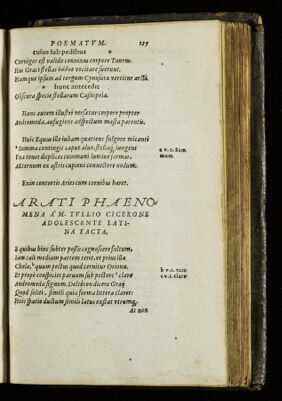 POEMATVM. 129
cuius sub pedibus *
Corniger est valido connixus corpore Taurus.
Has Græci stellas vocitare suerunt.
Namque ipsum ad tergum Cynosura vertitur arcti.
* hunc antecedit
Obscura specie stellarum Cassiepia.
Hanc autem illustri versatur corpore propter
Andromeda, aufugiens adspectum mæsta parentis.
Huic Equus ille iubam quatiens fulgore micanti
a Summa contingit caput aluo, stellaq; iungens
Vna tenet duplices communi lumine formas,
Æternum ex astris cupiens connectere nodum.
a v. c. Summum
Exim contortis Aries cum cornibus hæret.
ARATI PHAENO-
MENA A M. TVLLIO CICERONE
ADOLESCENTE LATI-
NA FACTA.
E quibus hinc subter possis cognoscere fultum,
Iam cæli mediam partem terit, vt prius illæ
Chelæ, b quum pectus quod cernitur Orionis.
Et prope conspicies paruum sub pectore c claro
Andromedæ signum, Deltoton dicere Graij
Quod soliti, simili quia forma littera claret:
Huic spatio ductum simili latus exstat vtrumq;
b v. c. tum
c v. c. claræ
At non